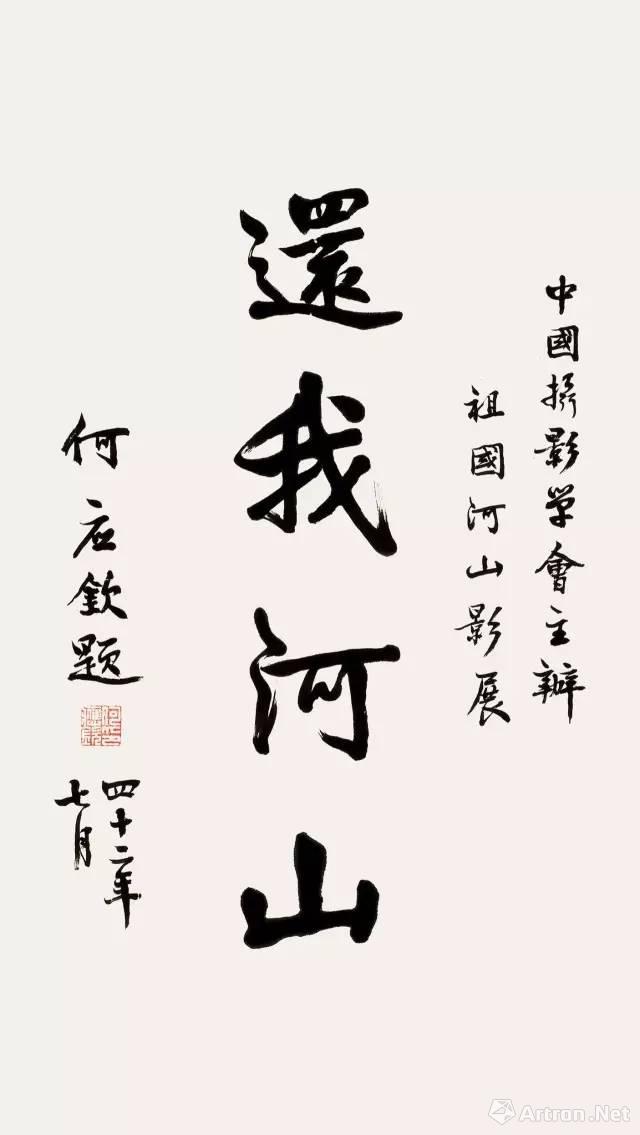 中國攝影学會主辦
祖國河山影展
還我河山
何应欽题
四十二年
七月
Artron.Net